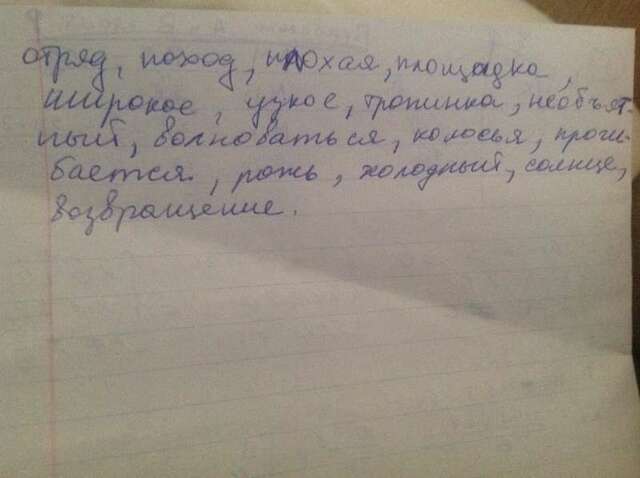 отряд, поход, плохая, площадка,
широкое, узкое, тропинка, необъят-
ный, волноваться, колосья, проги-
бается, рожь, холодный, солнце,
возвращение.